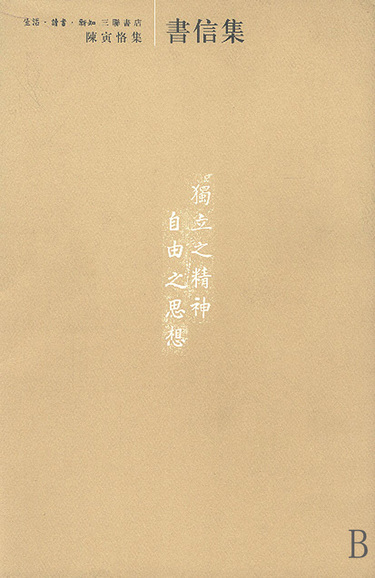 生活·讀書·新知三聯書店
陳寅恪集
書信集
獨立之精神
自由之思想
B